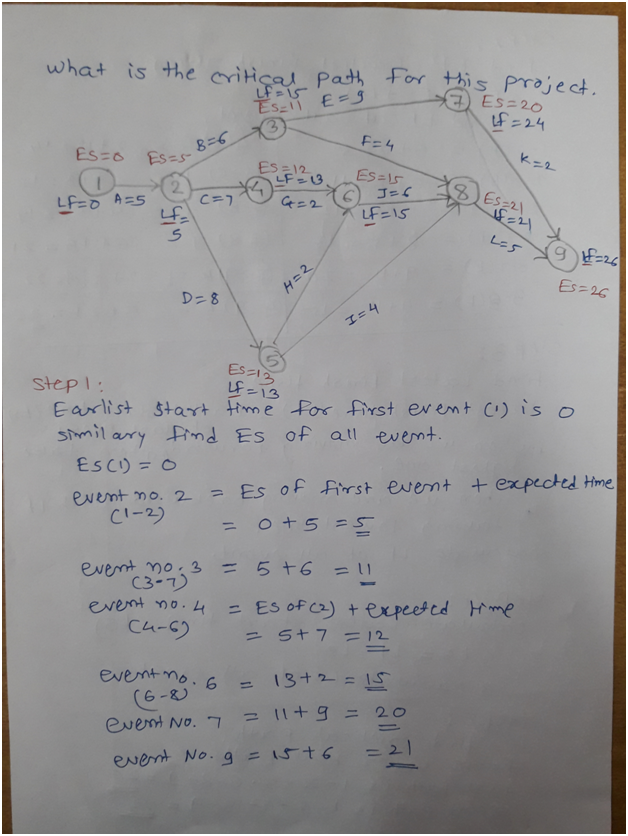 what is the critical path for this project.
LF=15
ES=11
E=9
7
ES=20
LF=24
3
B=6
F=4
K=2
ES=0
ES=5
ES=12
LF=13
ES=15
1
2
4
6
8
LF=0
A=5
C=7
G=2
J=6
ES=21
LF=21
LF=
5
LF=15
L=5
9
LF=26
ES=26
D=8
H=2
I=4
5
ES=13
LF=13
Step 1:
Earlist start time for first event (1) is 0
similary find ES of all event.
ES(1) = 0
event no. 2 = ES of first event + expected time
(1-2)
= 0+5 = 5
event no. 3 = 5+6 = 11
(3-7)
event no. 4 = ES of (2) + expected time
(4-6)
= 5+7 = 12
event no. 6 = 13+2 = 15
(6-8)
event No. 7 = 11+9 = 20
event No. 9 = 15+6 = 21